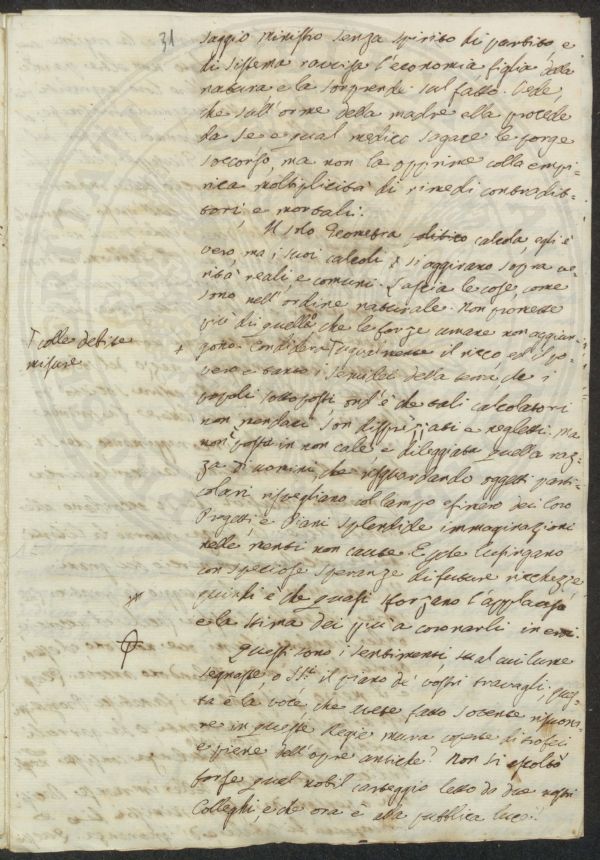 31
saggio ministro senza spirito di partito, e
di sistema ravvisa l'economia figlia della
natura e la sorprende sul fatto. Vede,
che sull'orme della madre ella procede
da se e qual medico sagace le porge
soccorso, ma non la opprime colla empi-
rica moltiplicità di rimedi contradit-
tori, e mortali.
Il solo Geometra politico calcola, egli è
vero, ma i suoi calcoli si aggirano sopra ve-
rità reali, e comuni. Lascia le cose, come
sono nell'ordine naturale. Non promette
più di quello, che le forze umane non aggiun-
gono. il ricco, ed il po-
vero e tanto i della terra, che i
popoli sottoposti, ond'è che tali calcolatori
non mendaci son disprezziati e negletti. Ma
non in non cale, e dileggiata quella raz-
za di uomini, che risguardando oggetti parti-
colari risvegliano col lampo efimero dei loro
Progetti, e Piani splendide immaginazioni
nelle menti non caute. E sole lusingano
con speciose speranze di future ricchezze,
quindi è che quasi sforzano l'applauso
e la stima dei più a coronarli in essi.
Questi sono i sentimenti, sul cui lume
segnaste, o SS.ri il piano de' vostri travagli, ques-
ta è la voce, che avete fatto sovente risuona-
re in queste Regie mura coperte di trofei
e piene dell'opre antiche. Non si ascoltò
forse qual nobil carteggio letto da due vostri
Colleghi, e che ora è alla pubblica luce?
colle debite
misure